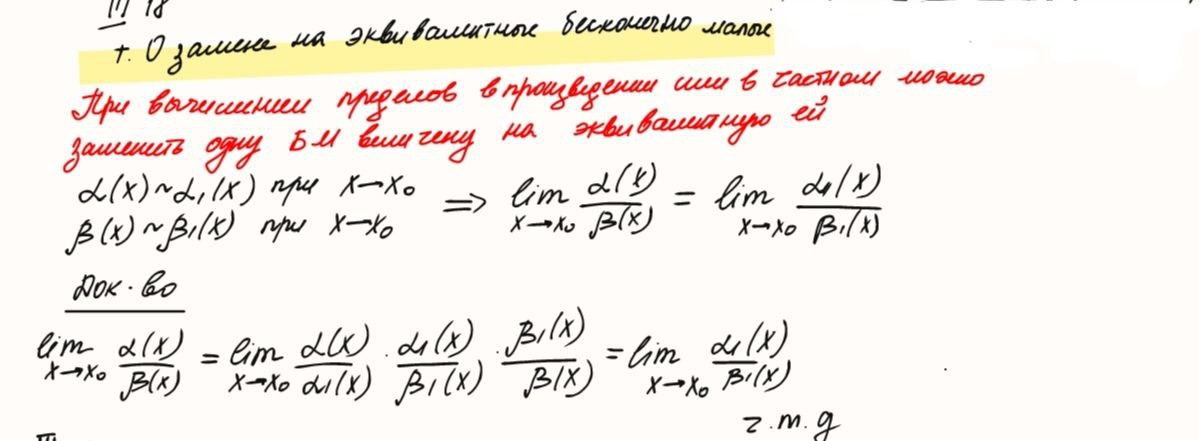 III 18
т. О замене на эквивалентные бесконечно малые
При вычислении пределов в произведении или в частном можно
заменить одну БМ величену на эквивалентную ей
α(x) ~ α₁(x) при x→x₀ ⇒ lim x→x₀ α(x)/β(x) = lim x→x₀ α₁(x)/β₁(x)
β(x) ~ β₁(x) при x→x₀
Док-во
lim x→x₀ α(x)/β(x) = lim x→x₀ α(x)/α₁(x) · α₁(x)/β₁(x) · β₁(x)/β(x) = lim x→x₀ α₁(x)/β₁(x)
ч.т.д